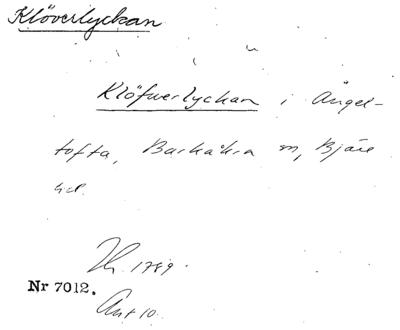 Klöverlyckan
Klöfverlyckan i Ängel-
tofta, Barkåkra sn, Bjäre
hd.
1789.
Nr 7012.
Akt 10.